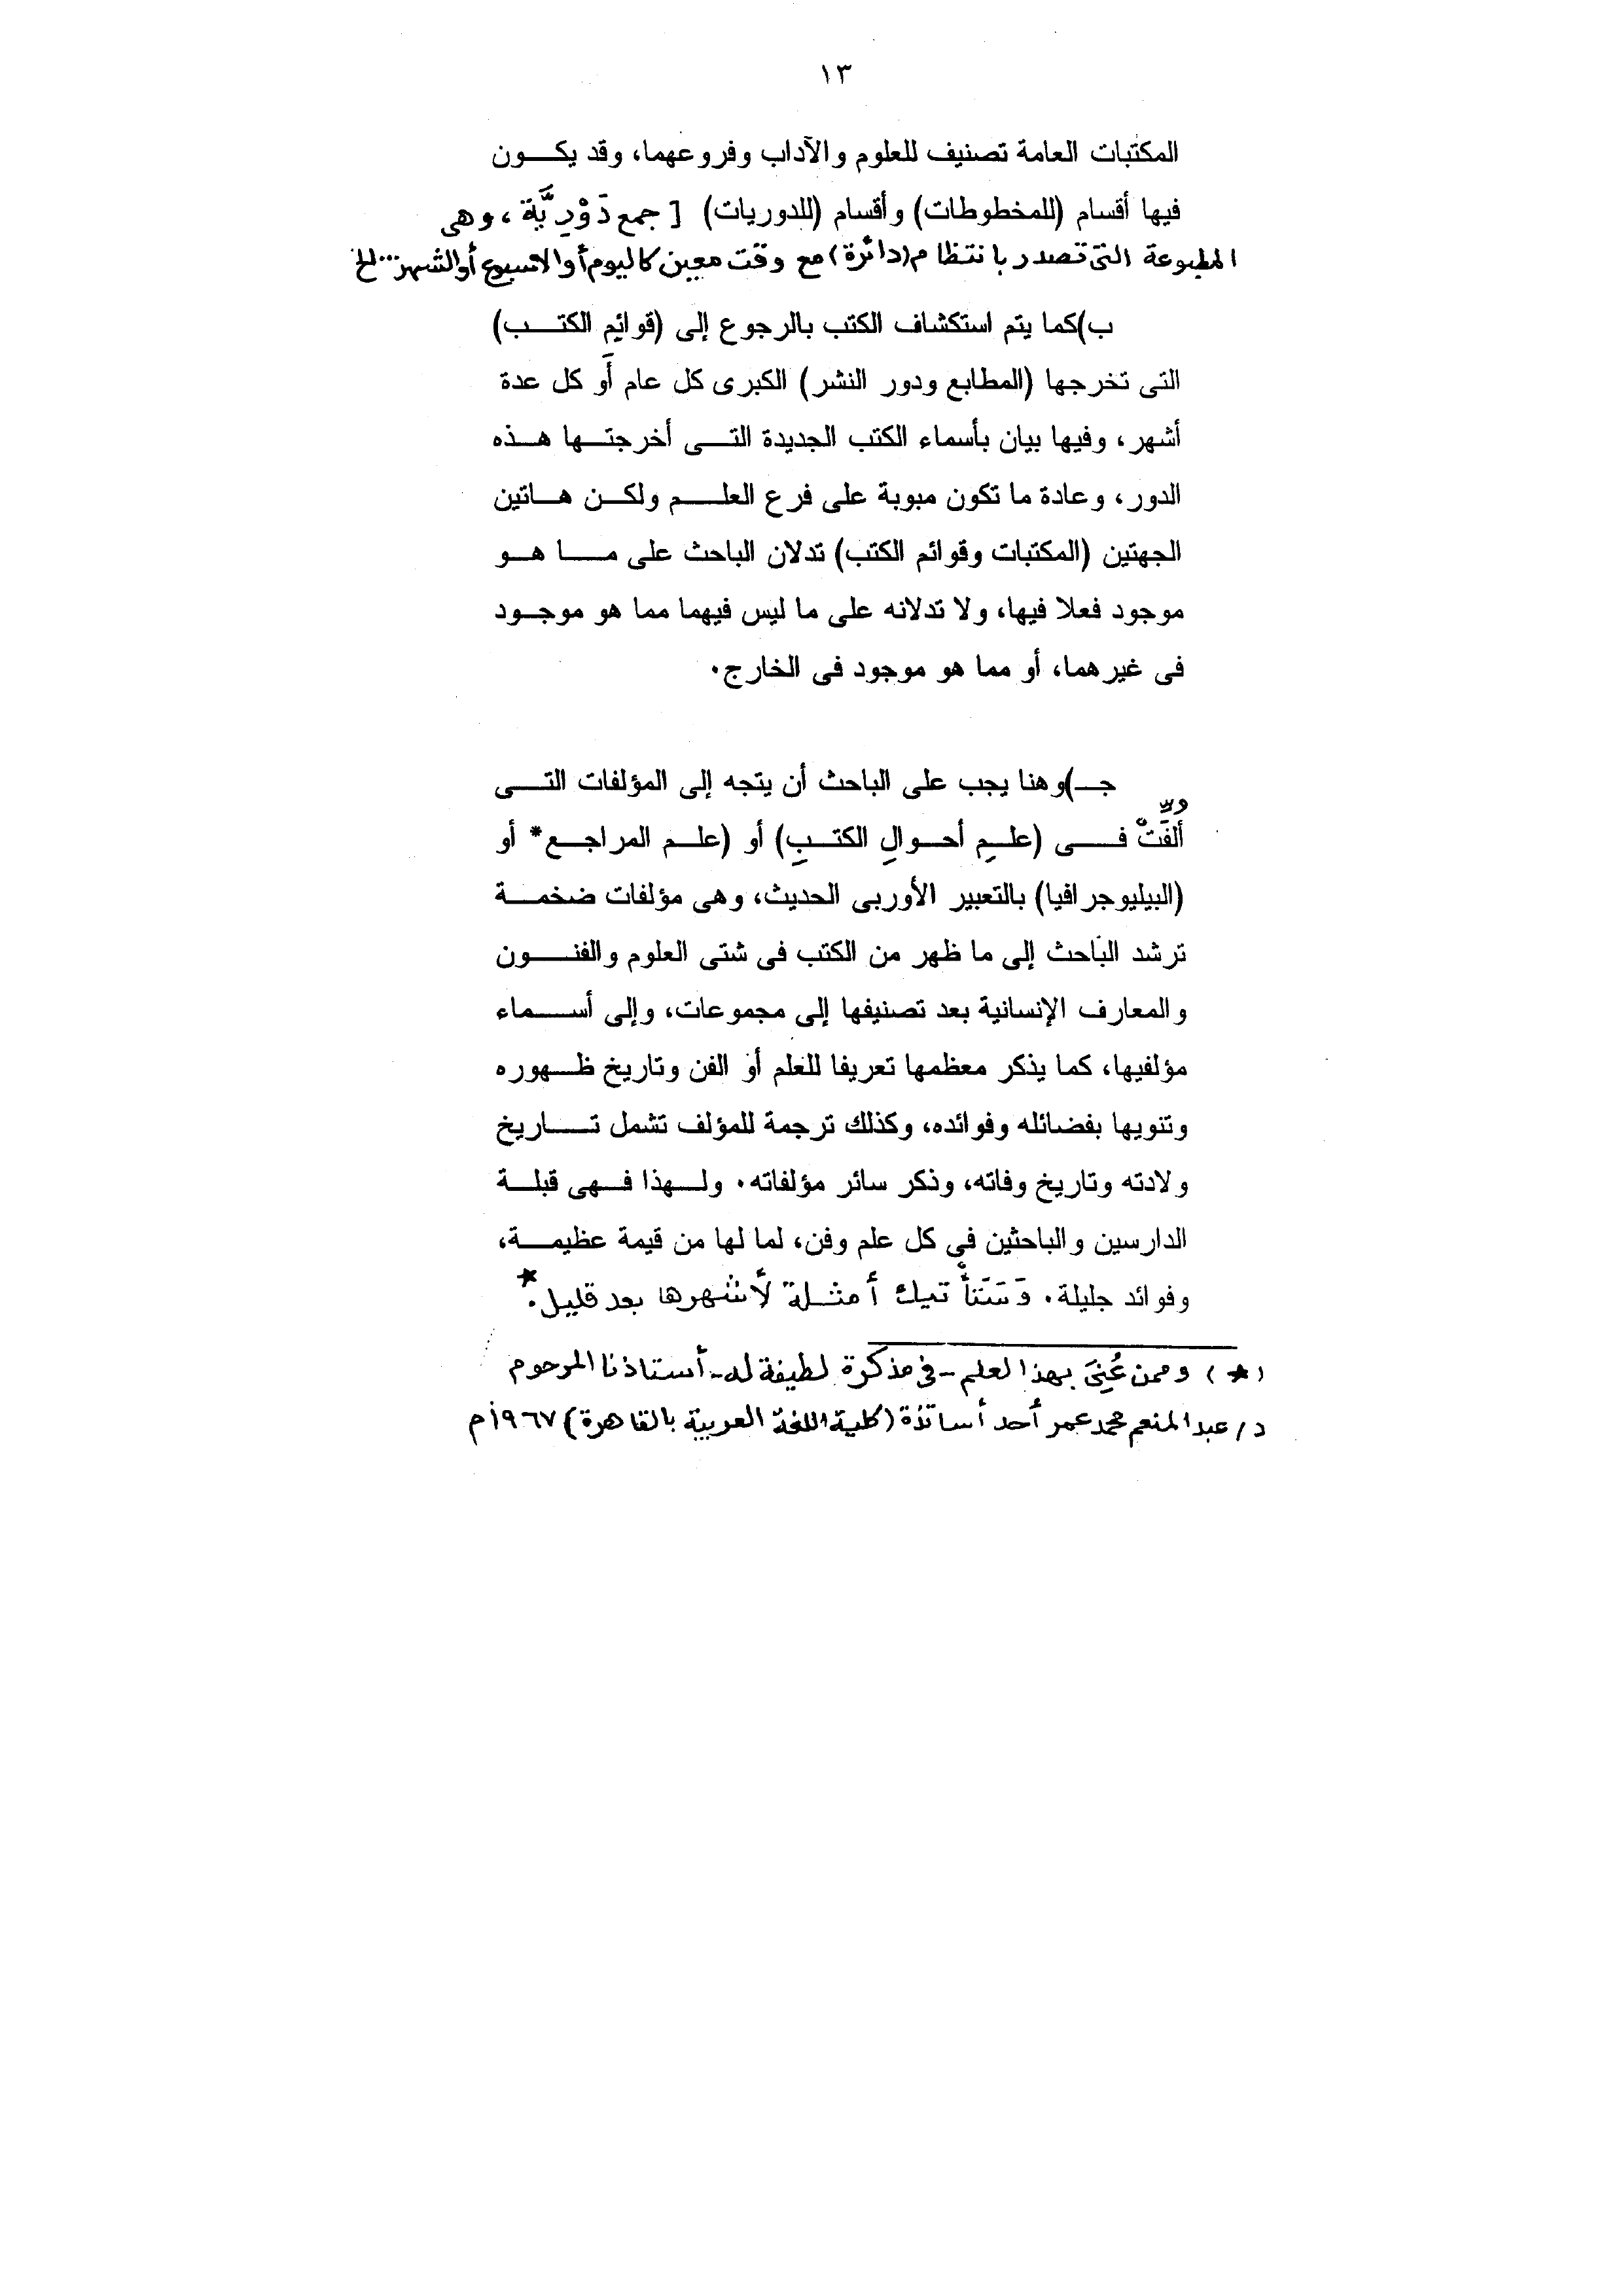 ١٣
المكتبات العامة تصنيف للعلوم والآداب وفروعهما، وقد يكون
فيها أقسام (للمخطوطات) وأقسام (للدوريات) [ جمع دَوْرِيَّة ، وهى
المطبوعة التى تصدر بانتظام (دائرة) مع وقت معين كاليوم أو الاسبوع أو الشهر... الخ
ب) كما يتم استكشاف الكتب بالرجوع إلى (قوائم الكتب)
التى تخرجها (المطابع ودور النشر) الكبرى كل عام أَو كل عدة
أشهر، وفيها بيان بأسماء الكتب الجديدة التى أخرجتها هذه
الدور، وعادة ما تكون مبوبة على فرع العلم ولكن هاتين
الجهتين (المكتبات وقوائم الكتب) تدلان الباحث على ما هو
موجود فعلا فيها، ولا تدلانه على ما ليس فيهما مما هو موجود
فى غيرهما، أو مما هو موجود فى الخارج.
جـ) وهنا يجب على الباحث أن يتجه إلى المؤلفات التى
أُلِّفَتْ فى (علمِ أحوالِ الكتبِ) أو (علم المراجع* أو
(البيليوجرافيا) بالتعبير الأوربى الحديث، وهى مؤلفات ضخمة
ترشد الباحث إلى ما ظهر من الكتب فى شتى العلوم والفنون
والمعارف الإنسانية بعد تصنيفها إلى مجموعات، وإلى أسماء
مؤلفيها، كما يذكر معظمها تعريفا للعلم أو الفن وتاريخ ظهوره
وتنويها بفضائله وفوائده، وكذلك ترجمة للمؤلف تشمل تاريخ
ولادته وتاريخ وفاته، وذكر سائر مؤلفاته. ولهذا فهى قبلة
الدارسين والباحثين في كل علم وفن، لما لها من قيمة عظيمة،
وفوائد جليلة. وَسَتَأْتيك أمثلة لأَشهرها بعد قليل.*
(*) وممن عُنِىَ بهذا العلم - فى مذكرة لطيفة له - أستاذنا المرحوم
د/ عبد المنعم محمد عمر أحد أساتذة (كلية اللغة العربية بالقاهرة) ١٩٦٧م